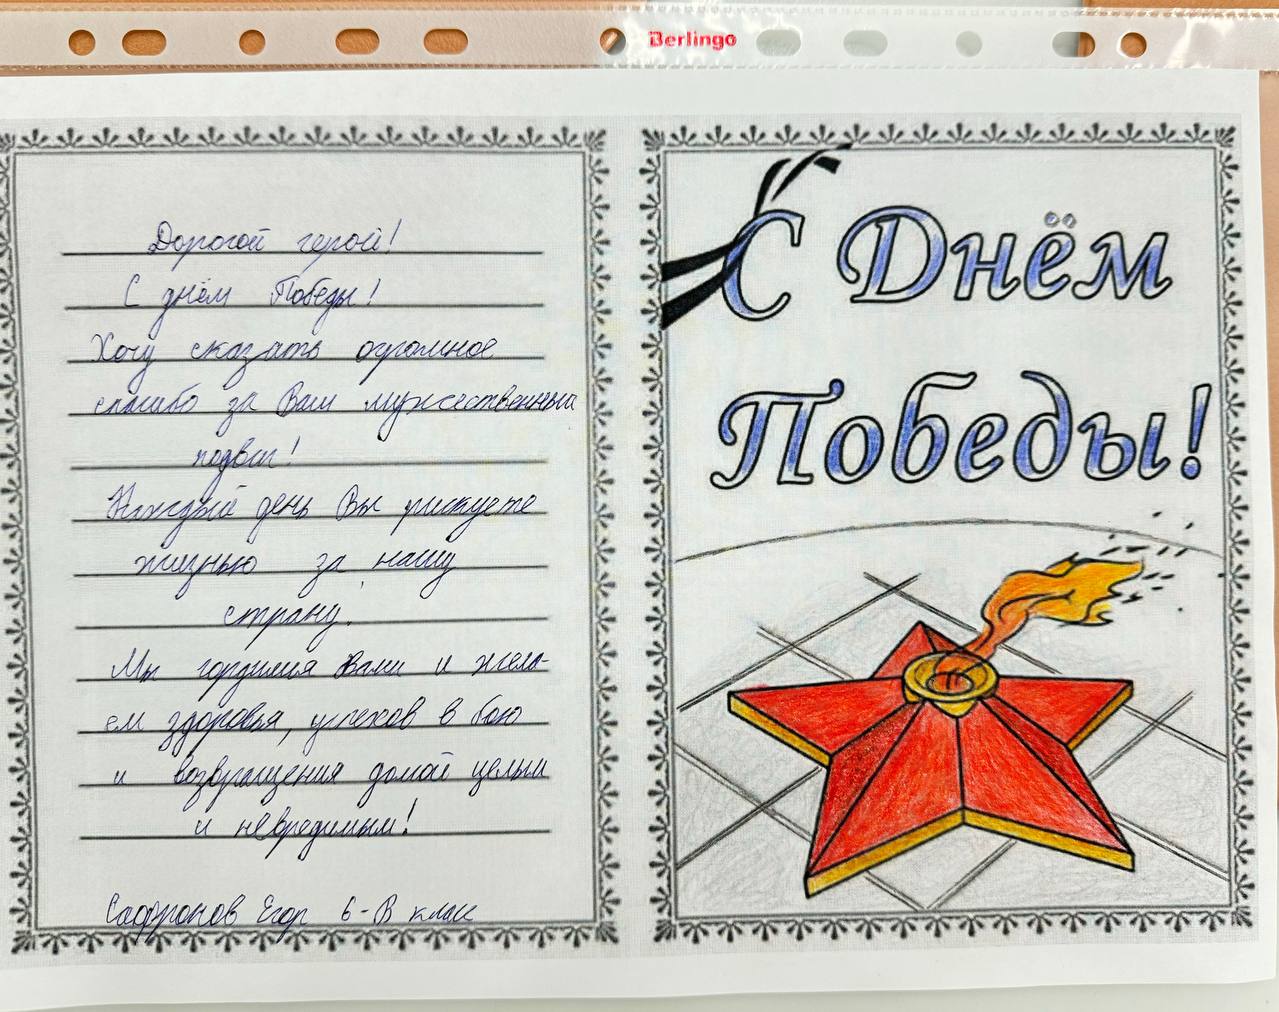 Berlingo
Дорогой герой!
С днём Победы!
Хочу сказать огромное
спасибо за Ваш мужественный
подвиг!
Каждый день Вы рискуете
жизнью за нашу
страну.
Мы гордимся Вами и жела-
ем здоровья, успехов в бою
и возвращения домой целым
и невредимым!
Сафронов Егор 6-В класс
С Днём
Победы!